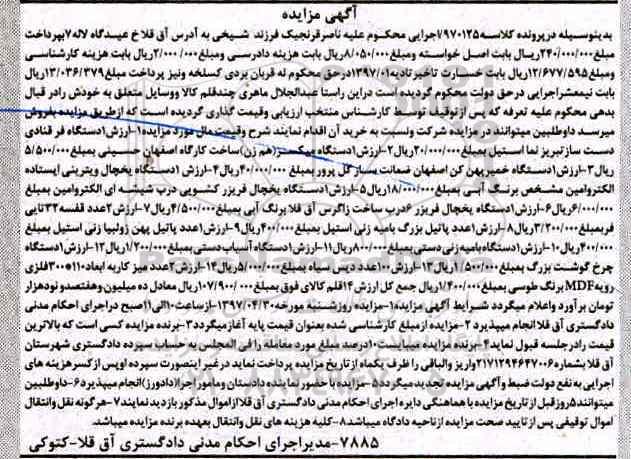 آگهی مزایده
بدینوسیله در پرونده کلاسه ۹۷۰۱۲۵/اجرایی محکوم علیه ناصر قرنجیک فرزند شیخی به آدرس آق قلا خ عیدگاه لاله ۷ بپرداخت
مبلغ ۲۴۰/۰۰۰/۰۰۰ ریال بابت اصل خواسته و مبلغ ۸/۰۵۰/۰۰۰ ریال بابت هزینه دادرسی و مبلغ ۲/۰۰۰/۰۰۰ ریال بابت هزینه کارشناسی
و مبلغ ۱۲/۶۷۷/۵۹۵ ریال بابت خسارت تاخیر تادیه ۱۳۹۷/۰۱ در حق محکوم له قربان بردی کسلخه و نیز پرداخت مبلغ ۱۳/۰۳۶/۳۷۹ ریال
بابت نیمعشر اجرایی در حق دولت محکوم گردیده است در این راستا عبدالجلال ماهری چند قلم کالا و وسایل متعلق به خودش را در قبال
بدهی محکوم علیه تعرفه که پس از توقیف توسط کارشناس منتخب ارزیابی و قیمت گذاری گردیده است که از طریق مزایده بفروش
میرسد داوطلبین میتوانند در مزایده شرکت ونسبت به خرید آن اقدام نمایند شرح وقیمت مال مورد مزایده ۱-ارزش ۱دستگاه فر قنادی
دست ساز تبریز نما استیل بمبلغ ۲۰/۰۰۰/۰۰۰ ریال ۲-ارزش ۱دستگاه میکسر(هم زن) ساخت کارگاه اصفهان حسینی بمبلغ ۵/۵۰۰/۰۰۰
ریال ۳-ارزش ۱دستگاه خمیر پهن کن اصفهان ضمانت بسیار گل پرور بمبلغ ۴۰/۰۰۰/۰۰۰ ریال ۴-ارزش ۱دستگاه یخچال ویترینی ایستاده
الکترو امین مشخص برنگ آبی بمبلغ ۱۸/۰۰۰/۰۰۰ ریال ۵-ارزش ۱دستگاه یخچال فریزر کشویی درب شیشه ای الکترو امین بمبلغ
۶/۰۰۰/۰۰۰ ریال ۶-ارزش ۱دستگاه یخچال فریزر ۶درب ساخت زاگرس آق قلا برنگ آبی بمبلغ ۴/۵۰۰/۰۰۰ ریال ۷-ارزش ۲عدد قفسه ۳۲تایی
فر بمبلغ ۳/۲۰۰/۰۰۰ ریال ۸-ارزش ۱عدد پاتیل بزرگ بامیه زنی استیل بمبلغ ۴۰۰/۰۰۰ ریال ۹-ارزش ۱عدد پاتیل پهن زولبیا زنی استیل بمبلغ
۴۰۰/۰۰۰ ریال ۱۰-ارزش ۱دستگاه بامیه زنی دستی بمبلغ ۸۰۰/۰۰۰ ریال ۱۱-ارزش ۱دستگاه آسیاب دستی بمبلغ ۱/۲۰۰/۰۰۰ ریال ۱۲-ارزش ۱دستگاه
چرخ گوشت بزرگ بمبلغ ۱/۵۰۰/۰۰۰ ریال ۱۳-ارزش ۱۰۰عدد دیس سیاه بمبلغ ۵/۰۰۰/۰۰۰ ریال ۱۴-ارزش ۲عدد میز کار به ابعاد ۱۱۰*۳۰۰فلزی
رویه MDF برنگ طوسی بمبلغ ۱/۴۰۰/۰۰۰ ریال جمع کل ارزش ۱۴قلم کالای فوق بمبلغ ۱۰۷/۹۰۰/۰۰۰ ریال معادل ده میلیون وهفتصدو نود هزار
تومان برآورد واعلام میگردد شرایط آگهی مزایده:۱-مزایده روز شنبه مورخه ۱۳۹۷/۰۴/۳۰-ازساعت ۱۰الی ۱۱صبح در اجرای احکام مدنی
دادگستری آق قلا انجام میپذیرد ۲-مزایده از مبلغ کارشناسی شده بعنوان قیمت پایه آغاز میگردد ۳-برنده مزایده کسی است که بالاترین
قیمت را در جلسه قبول نماید ۴-برنده مزایده میبایست ۱۰درصد مبلغ مورد معامله را فی المجلس به حساب سپرده دادگستری شهرستان
آق قلا بشماره ۲۱۷۱۲۹۴۶۴۷۰۰۶ واریز والباقی را ظرف یکماه از تاریخ مزایده پرداخت نماید در غیر اینصورت سپرده او پس از کسر هزینه های
اجرایی به نفع دولت ضبط و آگهی مزایده تجدید میگردد ۵-مزایده با حضور نماینده دادستان ومامور اجرا(دادورز) انجام میپذیرد ۶-داوطلبین
میتوانند ۵روز قبل از تاریخ مزایده با هماهنگی دایره اجرای احکام مدنی دادگستری آق قلا از اموال مذکور بازدید نمایند ۷-هر گونه نقل وانتقال
اموال توقیفی پس از تایید صحت مزایده از ناحیه دادگاه میباشد ۸-کلیه هزینه های نقل وانتقال بعهده برنده مزایده میباشد.
۷۸۸۵-مدیر اجرای احکام مدنی دادگستری آق قلا-کتوکی